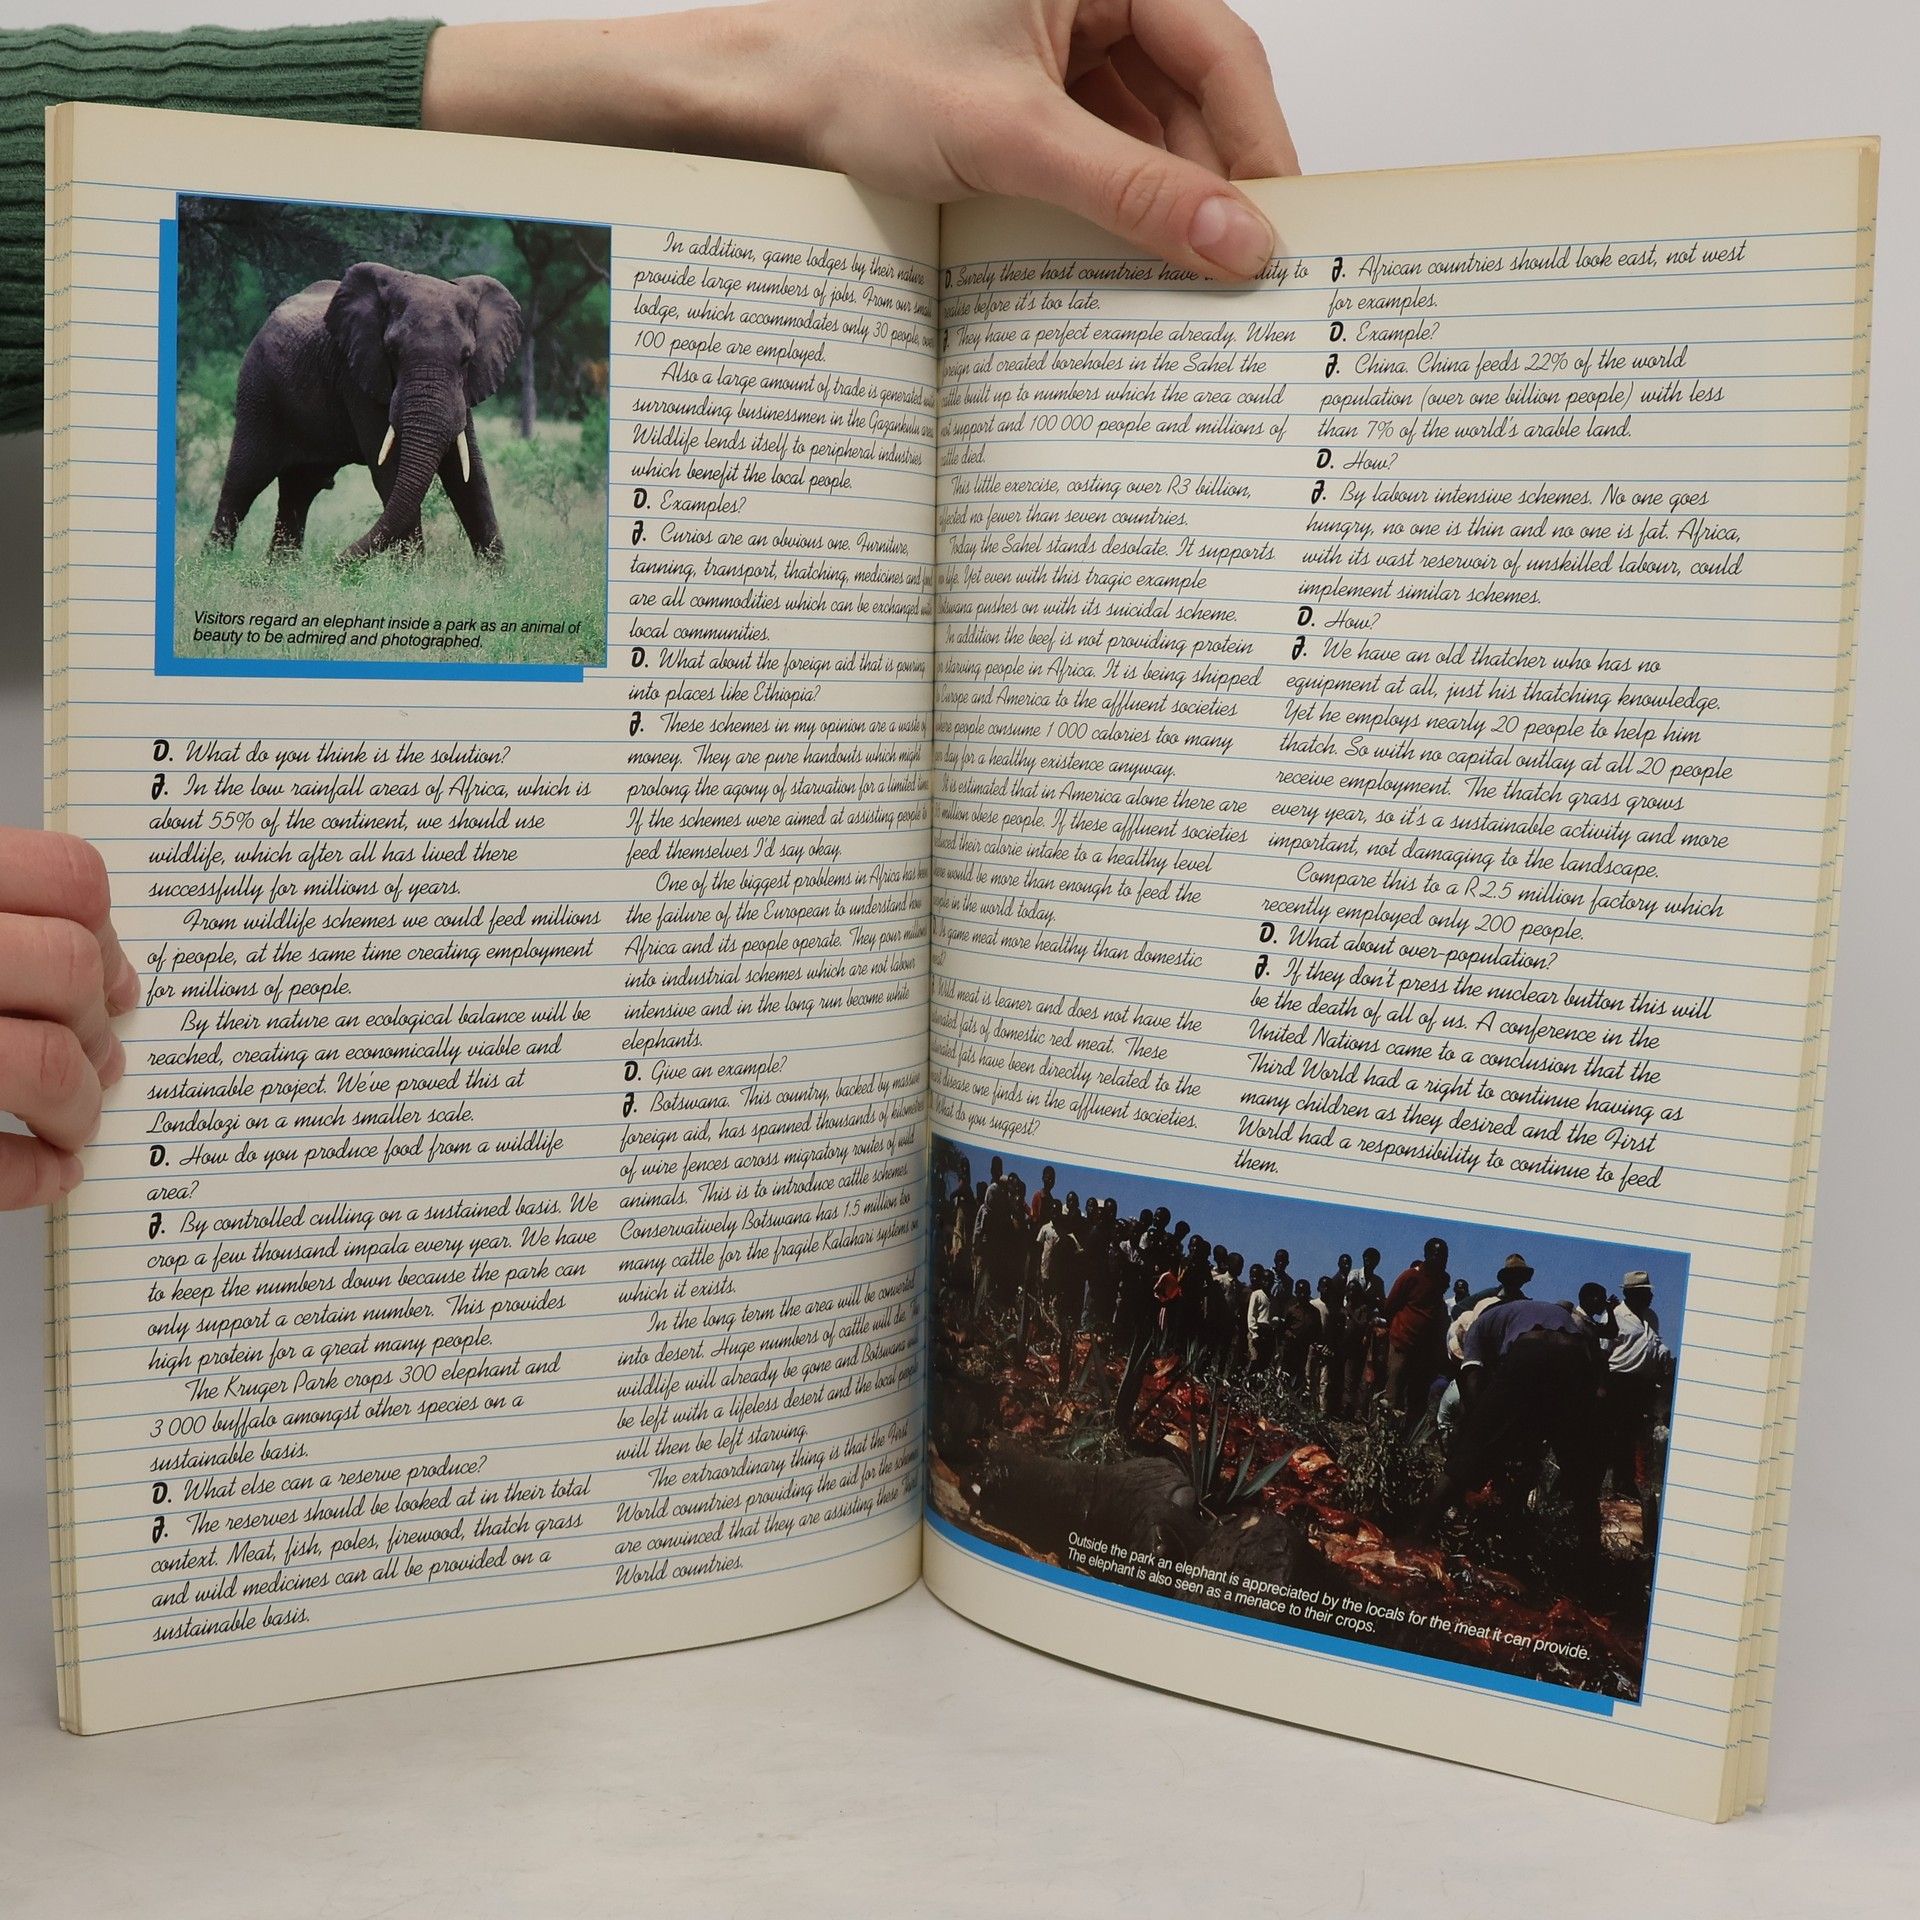 Visitors regard an elephant inside a park as an animal of
beauty to be admired and photographed.
D. What do you think is the solution?
J. In the low rainfall areas of Africa, which is
about 55% of the continent, we should use
wildlife, which after all has lived there
successfully for millions of years.
From wildlife schemes we could feed millions
of people, at the same time creating employment
for millions of people.
By their nature an ecological balance will be
reached, creating an economically viable and
sustainable project. We've proved this at
Londolozi on a much smaller scale.
D. How do you produce food from a wildlife
area?
J. By controlled culling on a sustained basis. We
crop a few thousand impala every year. We have
to keep the numbers down because the park can
only support a certain number. This provides
high protein for a great many people.
The Kruger Park crops 300 elephant and
3 000 buffalo amongst other species on a
sustainable basis.
D. What else can a reserve produce?
J. The reserves should be looked at in their total
context. Meat, fish, poles, firewood, thatch grass
and wild medicines can all be provided on a
sustainable basis.
In addition, game lodges by their nature
provide large numbers of jobs. From our small
lodge, which accommodates only 30 people, over
100 people are employed.
Also a large amount of trade is generated with
surrounding businessmen in the Gazankulu area.
Wildlife lends itself to peripheral industries
which benefit the local people.
D. Examples?
J. Curios are an obvious one. Furniture,
tanning, transport, thatching, medicines and
are all commodities which can be exchanged with
local communities.
D. What about the foreign aid that is pouring
into places like Ethiopia?
J. These schemes in my opinion are a waste of
money. They are pure handouts which might
prolong the agony of starvation for a limited time.
If the schemes were aimed at assisting people to
feed themselves I'd say okay.
One of the biggest problems in Africa has been
the failure of the European to understand how
Africa and its people operate. They pour millions
into industrial schemes which are not labour
intensive and in the long run become white
elephants.
D. Give an example?
J. Botswana. This country, backed by massive
foreign aid, has spanned thousands of kilometres
of wire fences across migratory routes of wild
animals. This is to introduce cattle schemes.
Conservatively Botswana has 1.5 million too
many cattle for the fragile Kalahari systems on
which it exists.
In the long term the area will be converted
into desert. Huge numbers of cattle will die. The
wildlife will already be gone and Botswana will
be left with a lifeless desert and the local people
will then be left starving.
The extraordinary thing is that the First
World countries providing the aid for the schemes
are convinced that they are assisting these Third
World countries.
D. Surely these host countries have to
realise before it's too late.
J. They have a perfect example already. When
foreign aid created boreholes in the Sahel the
cattle built up to numbers which the area could
not support and 100 000 people and millions of
cattle died.
This little exercise, costing over R3 billion,
affected no fewer than seven countries.
Today the Sahel stands desolate. It supports
no life. Yet even with this tragic example
Botswana pushes on with its suicidal scheme.
In addition the beef is not providing protein
for starving people in Africa. It is being shipped
to Europe and America to the affluent societies
where people consume 1 000 calories too many
per day for a healthy existence anyway.
It is estimated that in America alone there are
million obese people. If these affluent societies
reduced their calorie intake to a healthy level
there would be more than enough to feed the
people in the world today.
D. Is game meat more healthy than domestic
meat?
J. Wild meat is leaner and does not have the
saturated fats of domestic red meat. These
saturated fats have been directly related to the
heart disease one finds in the affluent societies.
D. What do you suggest?
J. African countries should look east, not west
for examples.
D. Example?
J. China. China feeds 22% of the world
population (over one billion people) with less
than 7% of the world's arable land.
D. How?
J. By labour intensive schemes. No one goes
hungry, no one is thin and no one is fat. Africa,
with its vast reservoir of unskilled labour, could
implement similar schemes.
D. How?
J. We have an old thatcher who has no
equipment at all, just his thatching knowledge.
Yet he employs nearly 20 people to help him
thatch. So with no capital outlay at all 20 people
receive employment. The thatch grass grows
every year, so it's a sustainable activity and more
important, not damaging to the landscape.
Compare this to a R2.5 million factory which
recently employed only 200 people.
D. What about over-population?
J. If they don't press the nuclear button this will
be the death of all of us. A conference in the
United Nations came to a conclusion that the
Third World had a right to continue having as
many children as they desired and the First
World had a responsibility to continue to feed
them.
Outside the park an elephant is appreciated by the locals for the meat it can provide.
The elephant is also seen as a menace to their crops.